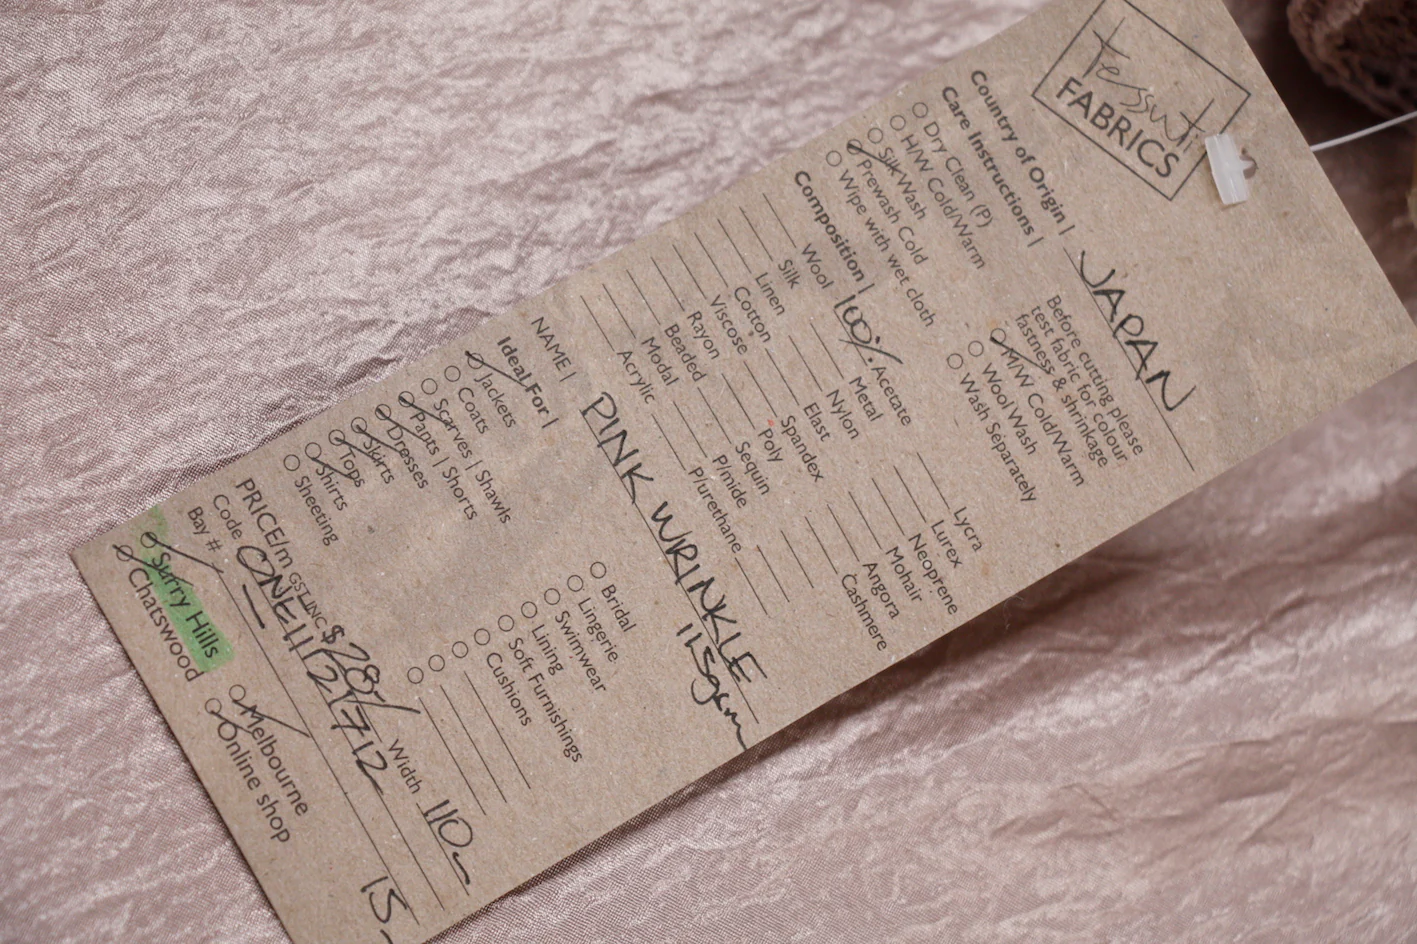 tessuti
FABRICS
Country of Origin | JAPAN
Care Instructions |
Before cutting please
test fabric for colour
fastness & shrinkage
Dry Clean (P)
H/W Cold/Warm
Silk Wash
Prewash Cold
Wipe with wet cloth
M/W Cold/Warm
Wool Wash
Wash Separately
Composition |
Wool
Silk
Linen
Cotton
Viscose
Rayon
Beaded
Modal
Acrylic
100% Acetate
Metal
Nylon
Elast
Spandex
Poly
Sequin
P/mide
P/urethane
Lycra
Lurex
Neoprene
Mohair
Angora
Cashmere
NAME | PINK WRINKLE
115gsm
Ideal For |
Jackets
Coats
Scarves | Shawls
Pants | Shorts
Dresses
Skirts
Tops
Shirts
Sheeting
Bridal
Lingerie
Swimwear
Lining
Soft Furnishings
Cushions
PRICE/m GST INC $28/ Width 110
Code ONE11121712
Bay # 15
Surry Hills
Chatswood
Melbourne
Online shop